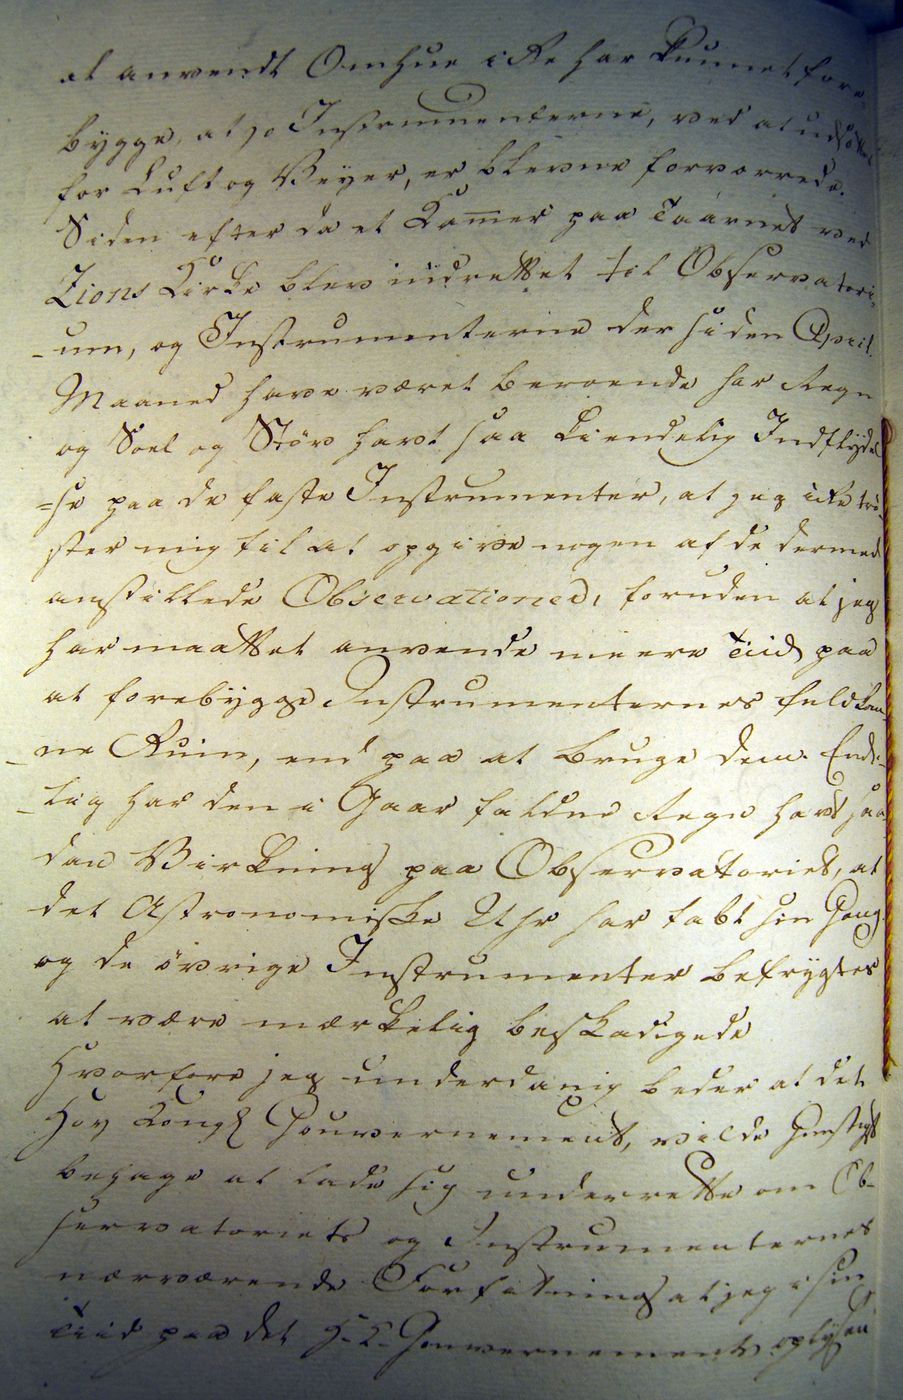 al anvendt Omhue ikke har kunnet fore-
bygge, at jo Instrumenterne, ved at udsættes
for Luft og Veyer, er blevne forværrede.
Siden efter da et Kam̅er paa Taarnet ved
Zions Kirke blev indrettet til Observatori-
-um, og Instrumenterne der siden April
Maaned have været beroende har Regn
og Soel og Støv havt saa kiendelig Indflydel
=se paa de faste Instrumenter, at jeg ikke trø-
ster mig til at opgive nogen af de dermed
anstillede Observationer, foruden at jeg
har maattet anvende meere Tiid paa
at forebygge Instrumenternes fuldkom-
-ne Ruin, end paa at bruge dem. Ende-
-lig har den i Gaar faldne Regn havt saa
dan Virkning paa Observatoriet, at
det Astronomiske Uhr har tabt sin Gang
og de øvrige Instrumenter befrygtes
at være mærkelig beskadigede
Hvorfore jeg underdanig beder at det
Høy Kongl Gouvernement, vilde gunstigst
behage at lade sig underrette om Ob-
servatoriets og Instrumenternes
nærværende Forfatning at jeg i sin
Tiid paa det H. K. Gouvernements oplysen